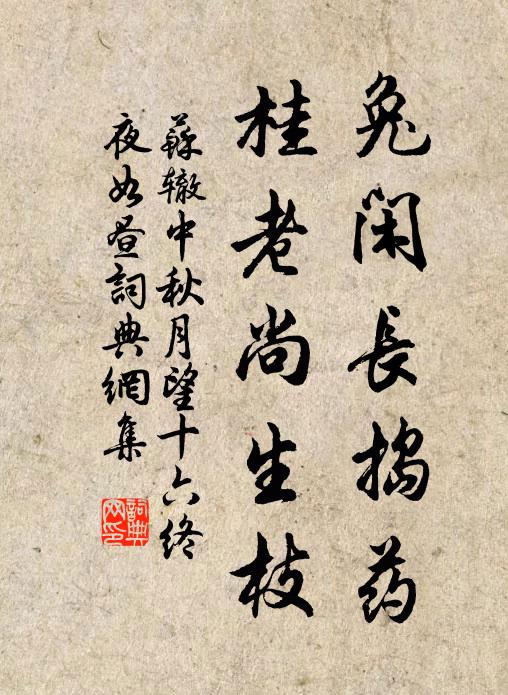 兔閑長搗药
桂老尚生枝
蘇辙中秋月望十六终
夜如昼詞典網集
詞典网印